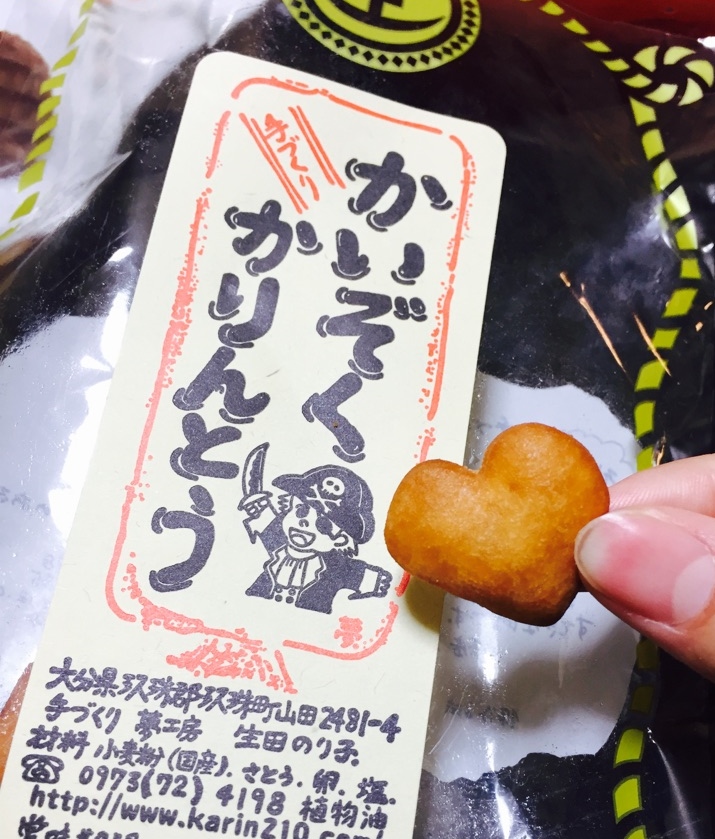 手づくり
かいぞく
かりんとう
大分県玖珠郡玖珠町山田2481-4
手づくり 夢工房 生田のり子
材料 小麦粉(国産)、さとう、卵、塩、
☎ 0973(72)4198 植物油
http://www.karin210.com/